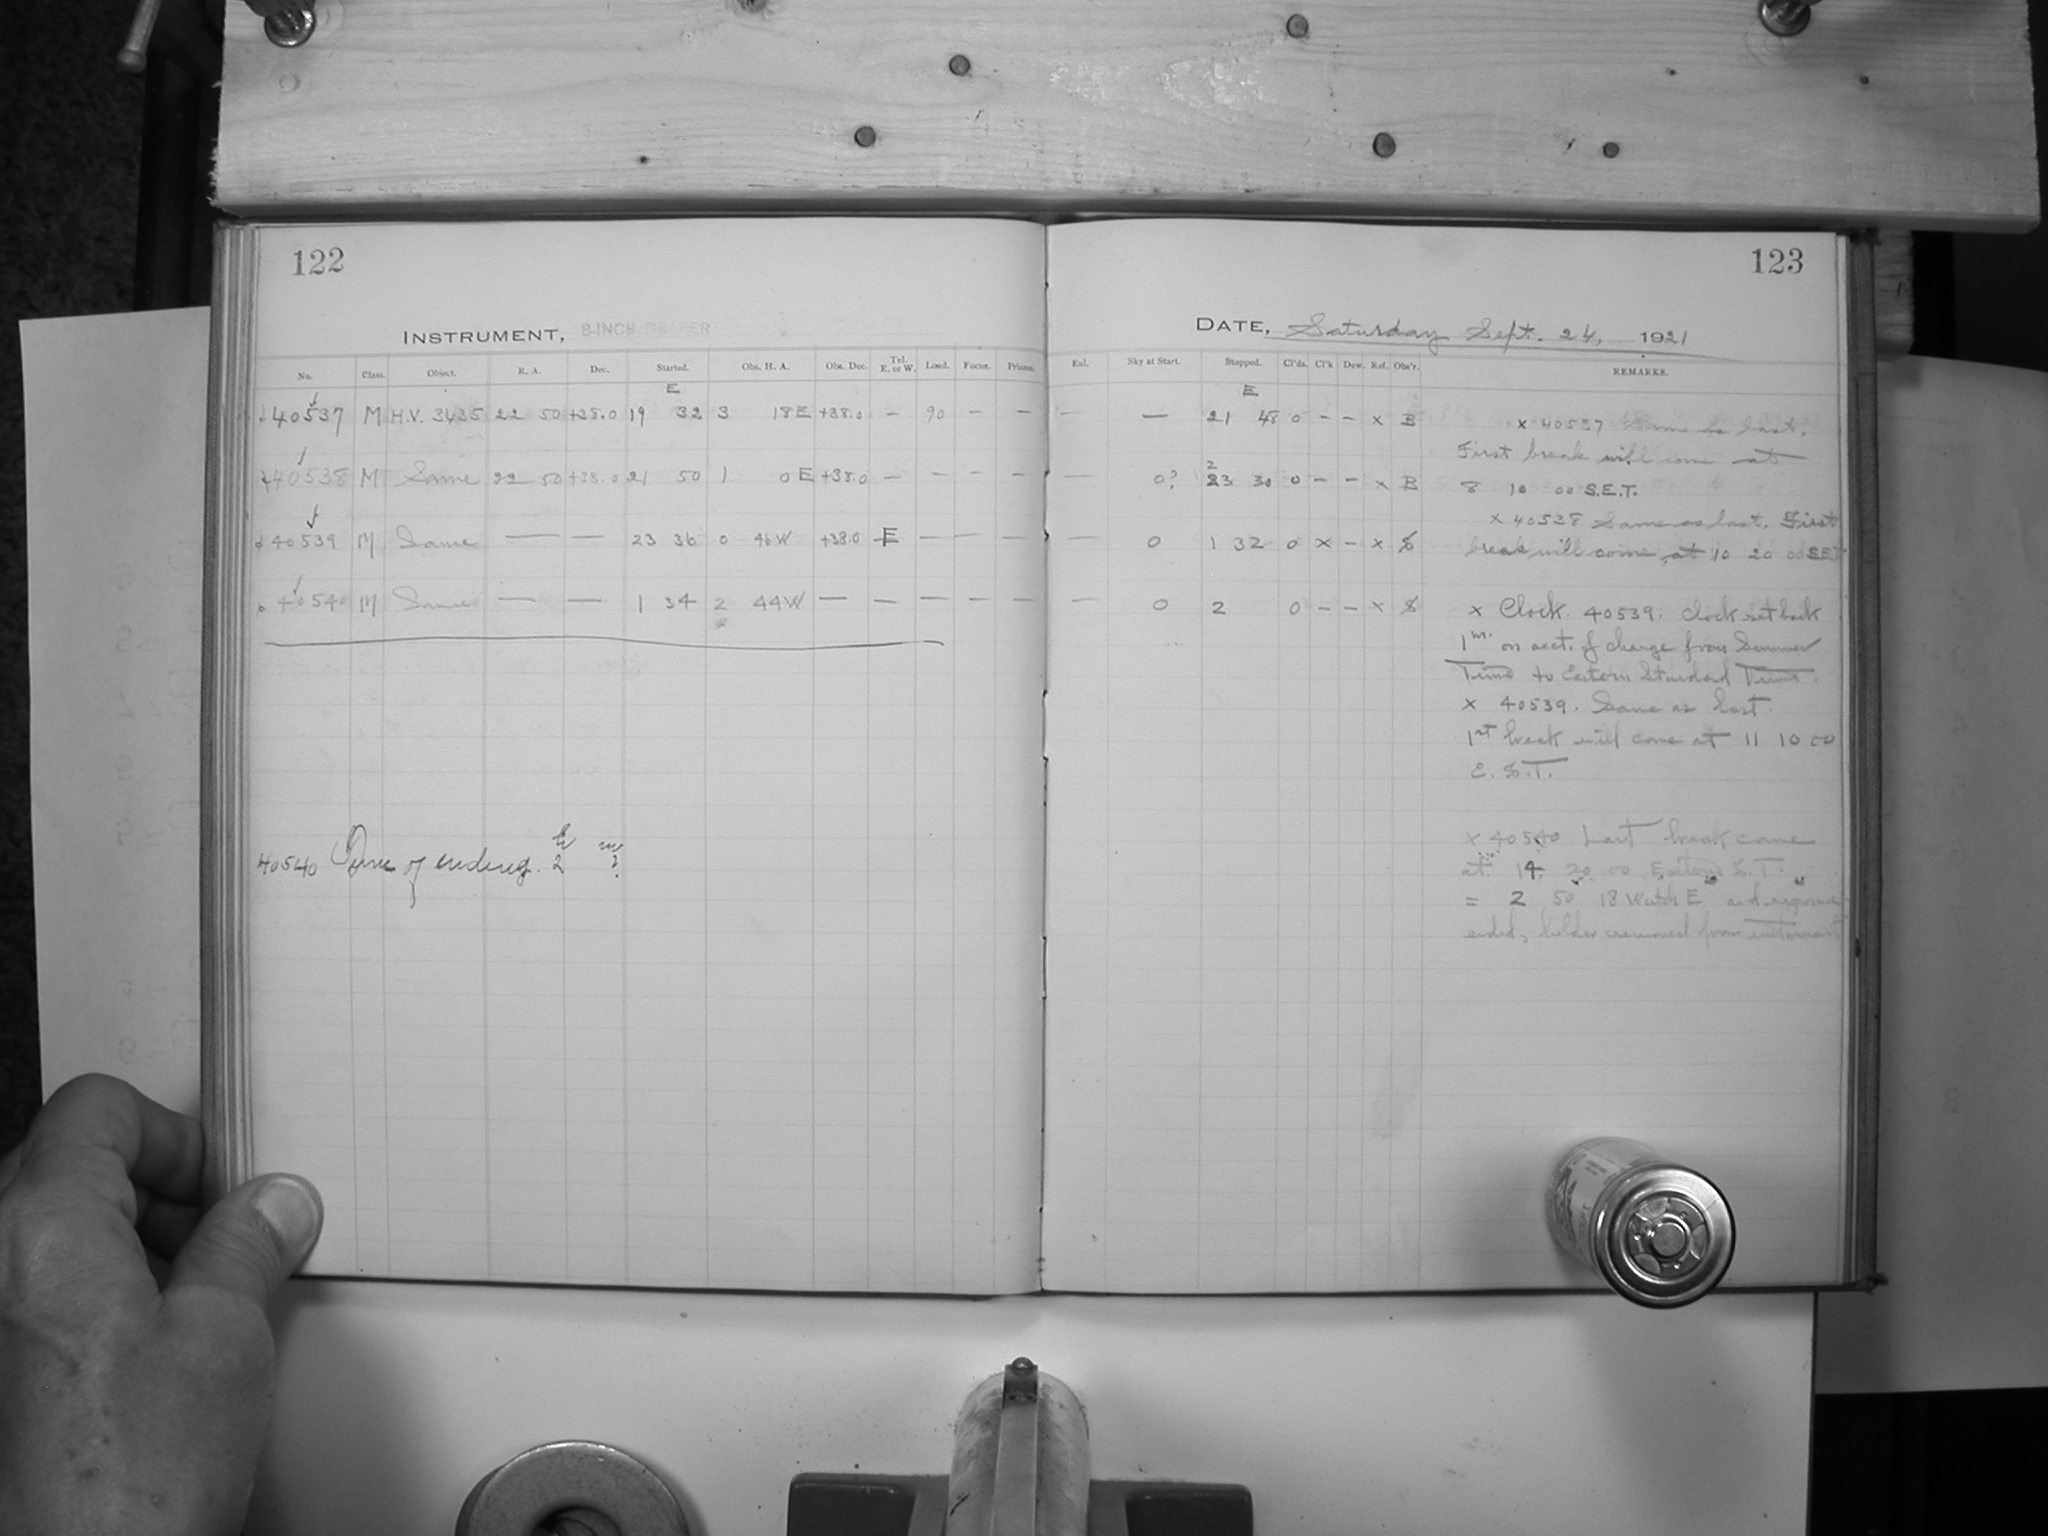 122
INSTRUMENT, 8-INCH DRAPER
No. Class. Object. R. A. Dec. Started. Obs. H. A. Obs. Dec. Tel. E. or W. Load. Focus. Prisms.
E
40537 M H.V. 3435 22 50 +38.0 19 32 3 18 E +38.0 — 90 — —
40538 M Same 22 50 +38.0 21 50 1 0 E +38.0 — — — —
40539 M Same — — 23 36 0 46 W +38.0 E — — —
40540 M Same — — 1 34 2 44 W — — — — —
40540 Time of ending. h 2 m ?
123
DATE, Saturday Sept. 24, 1921
Enl. Sky at Start. Stopped. Cl'ds. Cl'k Dew. Ref. Obs'r. REMARKS.
E
— — 21 48 0 — — x B
— 0? 23 30 0 — — x B
— 0 1 32 0 x — x S
— 0 2 0 — — x S
x 40537 Same as last.
First break will come at
8 10 00 S.E.T.
x 40538 Same as last. First
break will come at 10 20 00 SET
x Clock. 40539. Clock set back
1 m. on acct. of change from Summer
Time to Eastern Standard Time.
x 40539. Same as last.
1st break will come at 11 10 00
E.S.T.
x 40540 Last break came
at 14 20 00 Eastern S.T.
= 2 50 18 Watch E and exposure
ended, holder removed from instrument